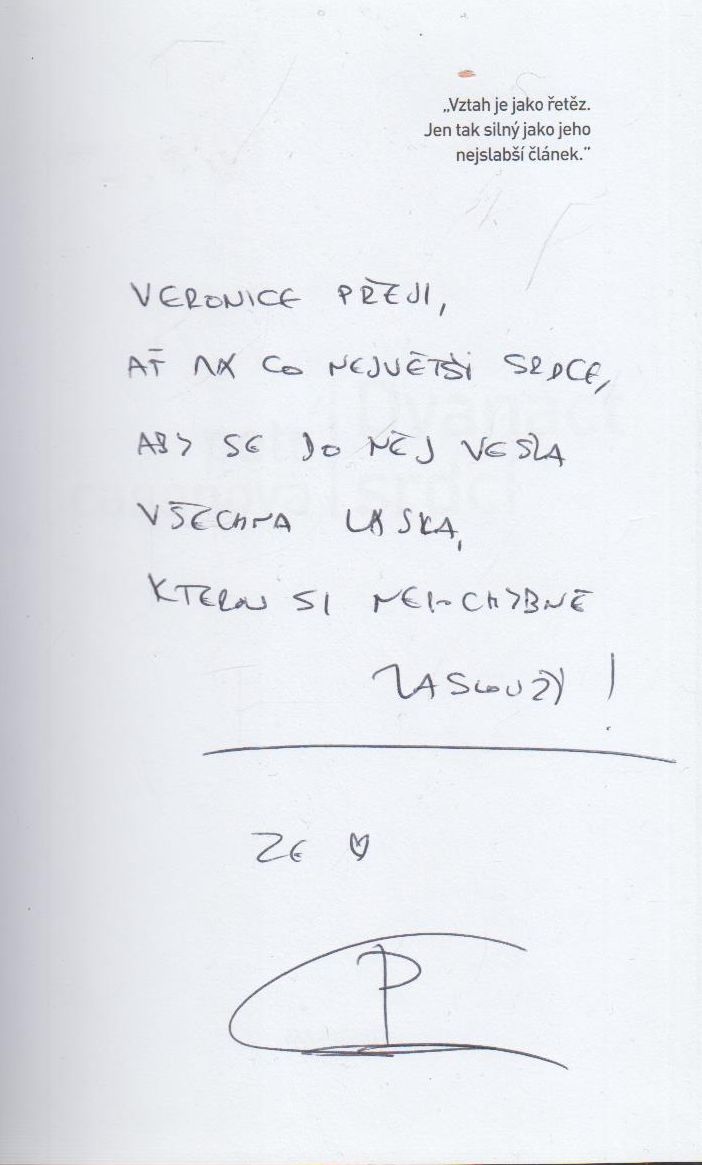 „Vztah je jako řetěz.
Jen tak silný jako jeho
nejslabší článek."
VERONICE PŘEJI,
AŤ MÁ CO NEJVĚTŠÍ SRDCE,
ABY SE DO NĚJ VEŠLA
VŠECHNA LÁSKA,
KTEROU SI NEPOCHYBNĚ
ZASLOUŽÍ!
ZE ♥
P